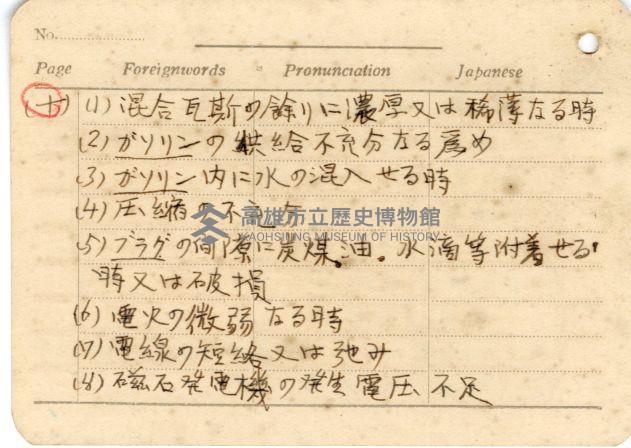 No.
Page Foreignwords Pronunciation Japanese
(1) 混合瓦斯の餘りに濃厚又は稀薄なる時
(2) ガソリンの供給不充分なる為め
(3) ガソリン内に水の混入せる時
(4) 圧縮の不
高雄市立歷史博物館
KAOHSIUNG MUSEUM OF HISTORY
(5) プラグの間隙に炭煤、油、水滴等附着せる
時又は破損
(6) 電火の微弱なる時
(7) 電線の短絡又は弛み
(8) 磁石発電機の発生電圧不足